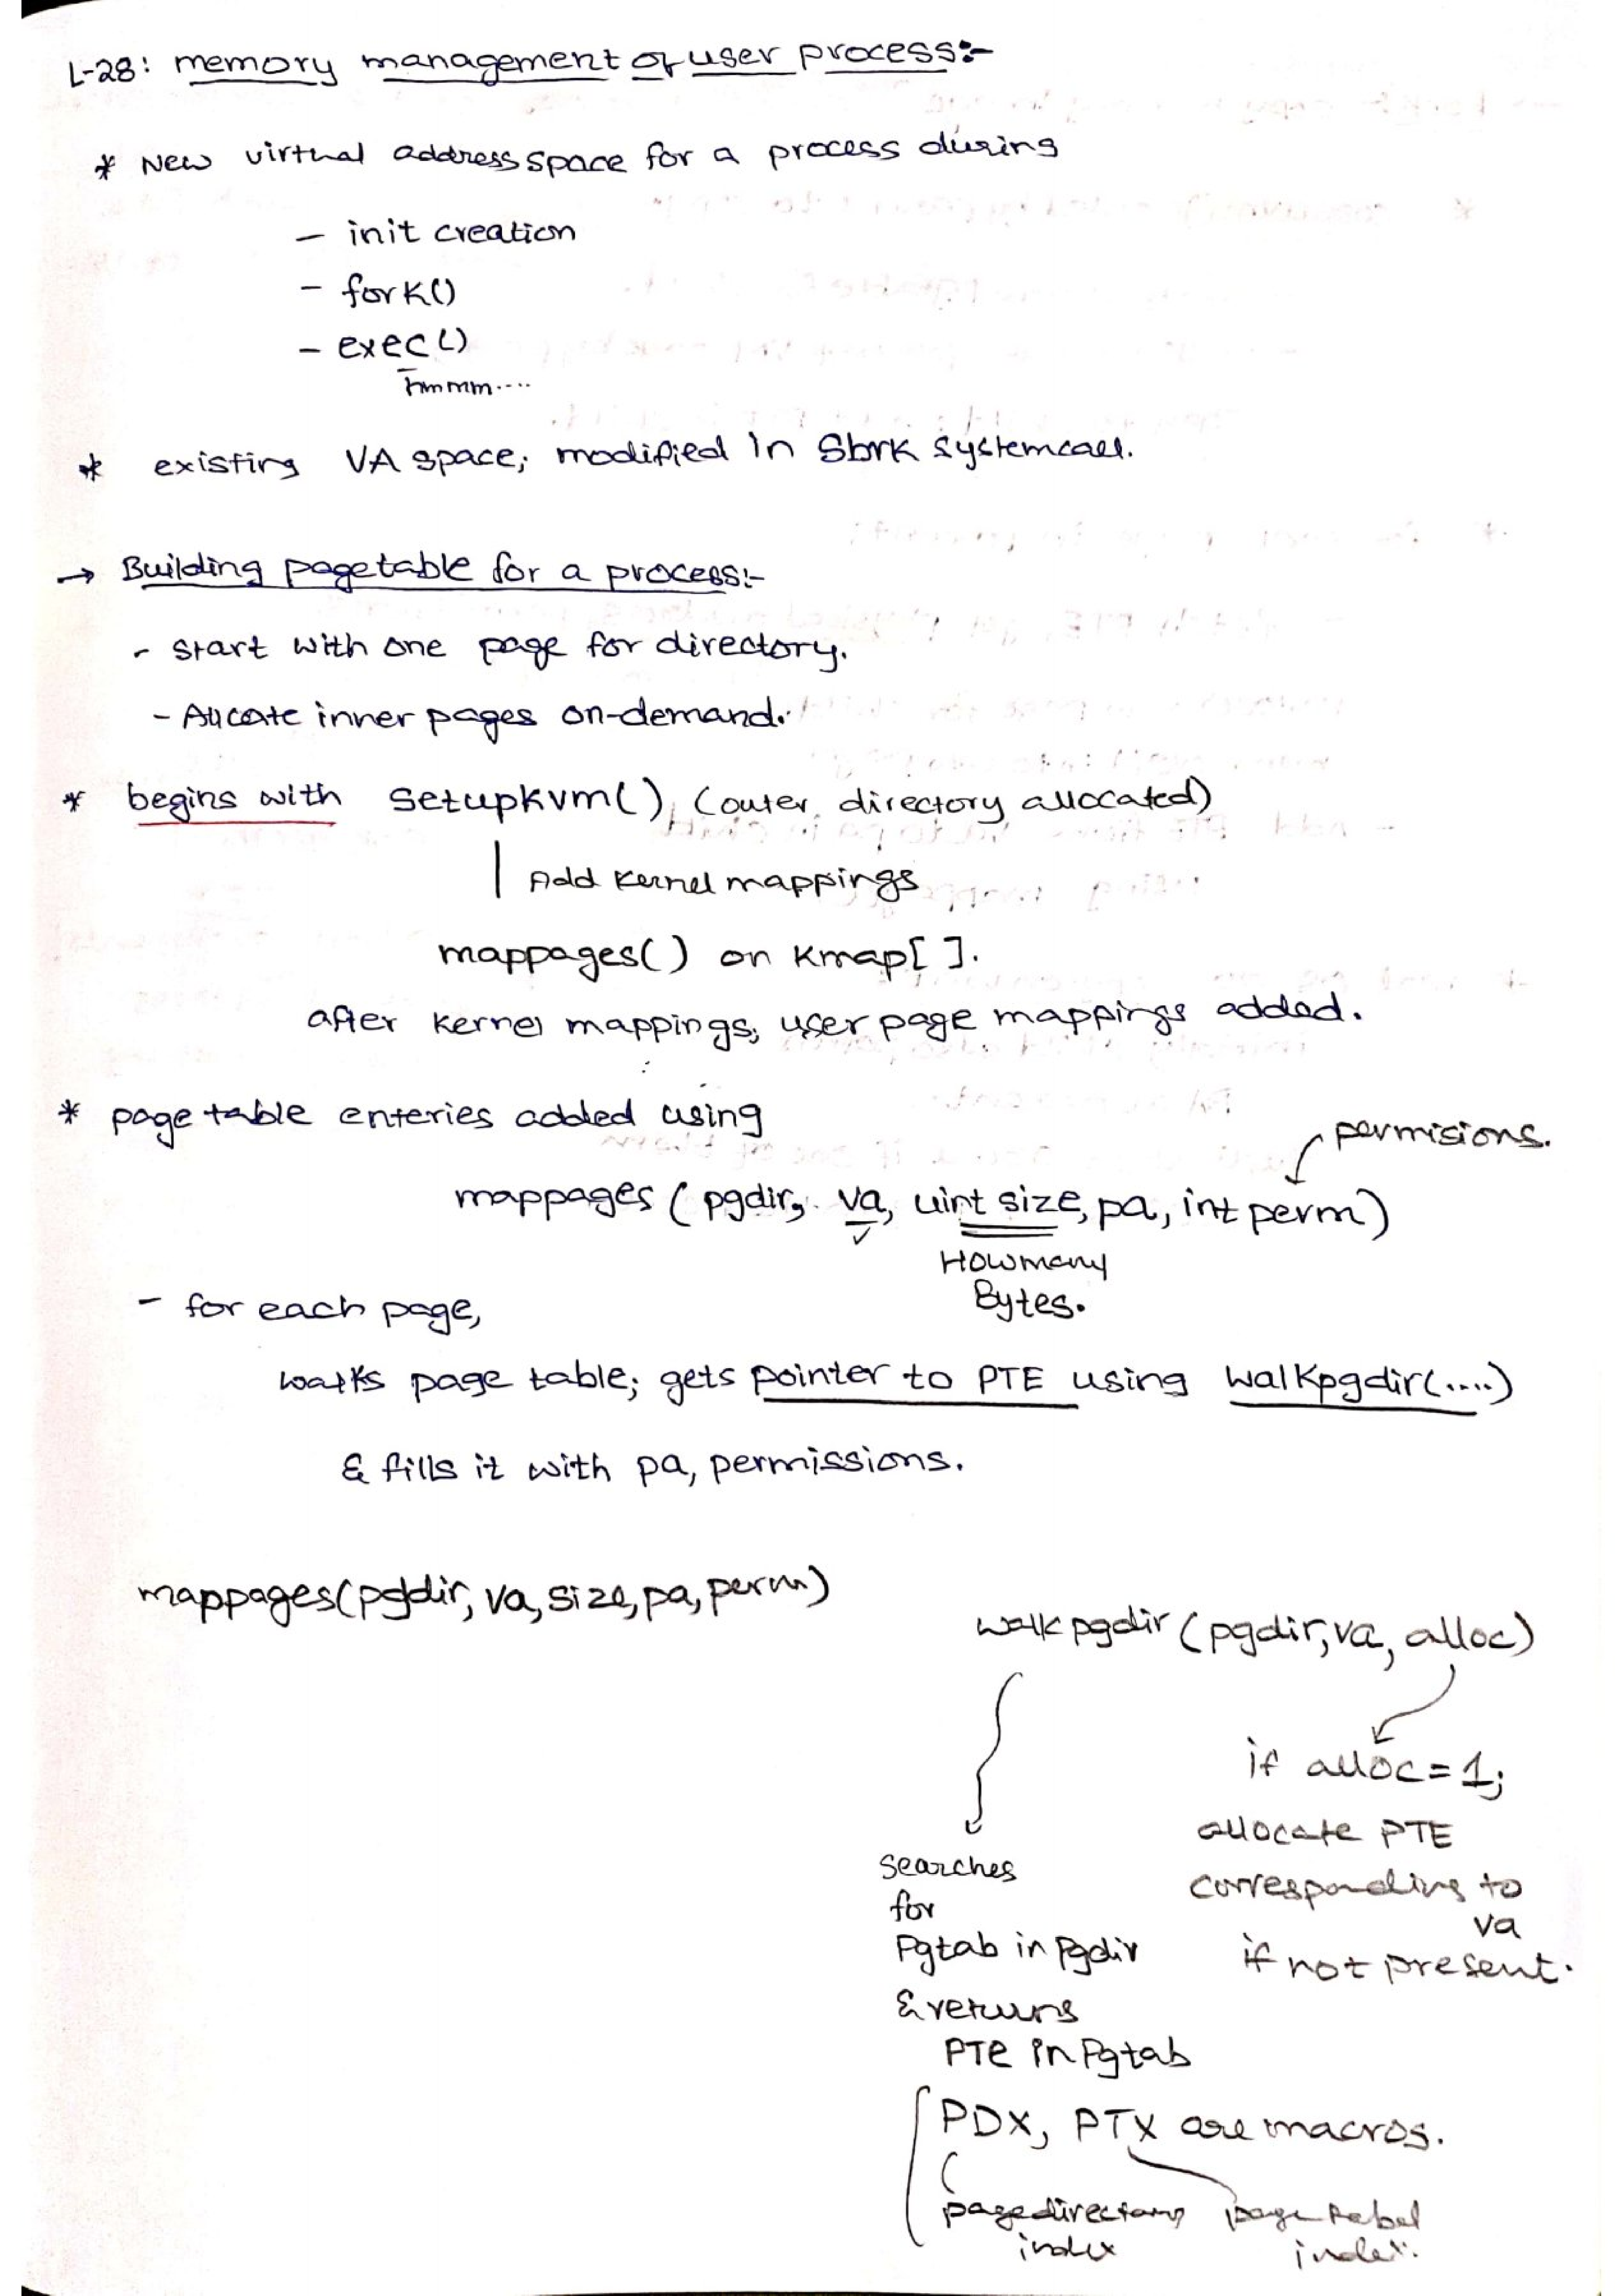 L-28: memory management of user process:-
* New virtual address space for a process during
- init creation
- fork()
- exec()
hmmm....
* existing VA space; modified in Sbrk systemcall.
→ Building pagetable for a process:-
- start with one page for directory.
- Allcate inner pages on-demand.
* begins with setupkvm() (outer directory allocated)
Add kernel mappings
mappages() on kmap[ ].
after kernel mappings, user page mappings added.
* page table enteries added using
permisions.
mappages ( pgdir, va, uint size, pa, int perm)
Howmany
Bytes.
- for each page,
walks page table; gets pointer to PTE using walkpgdir(....)
& fills it with pa, permissions.
mappages(pgdir, va, size, pa, perm)
walkpgdir (pgdir, va, alloc)
if alloc = 1;
allocate PTE
corresponding to
va
if not present.
searches
for
Pgtab in Pgdir
& returns
PTE in Pgtab
PDX, PTX are macros.
pagedirectory index
page tabel index.